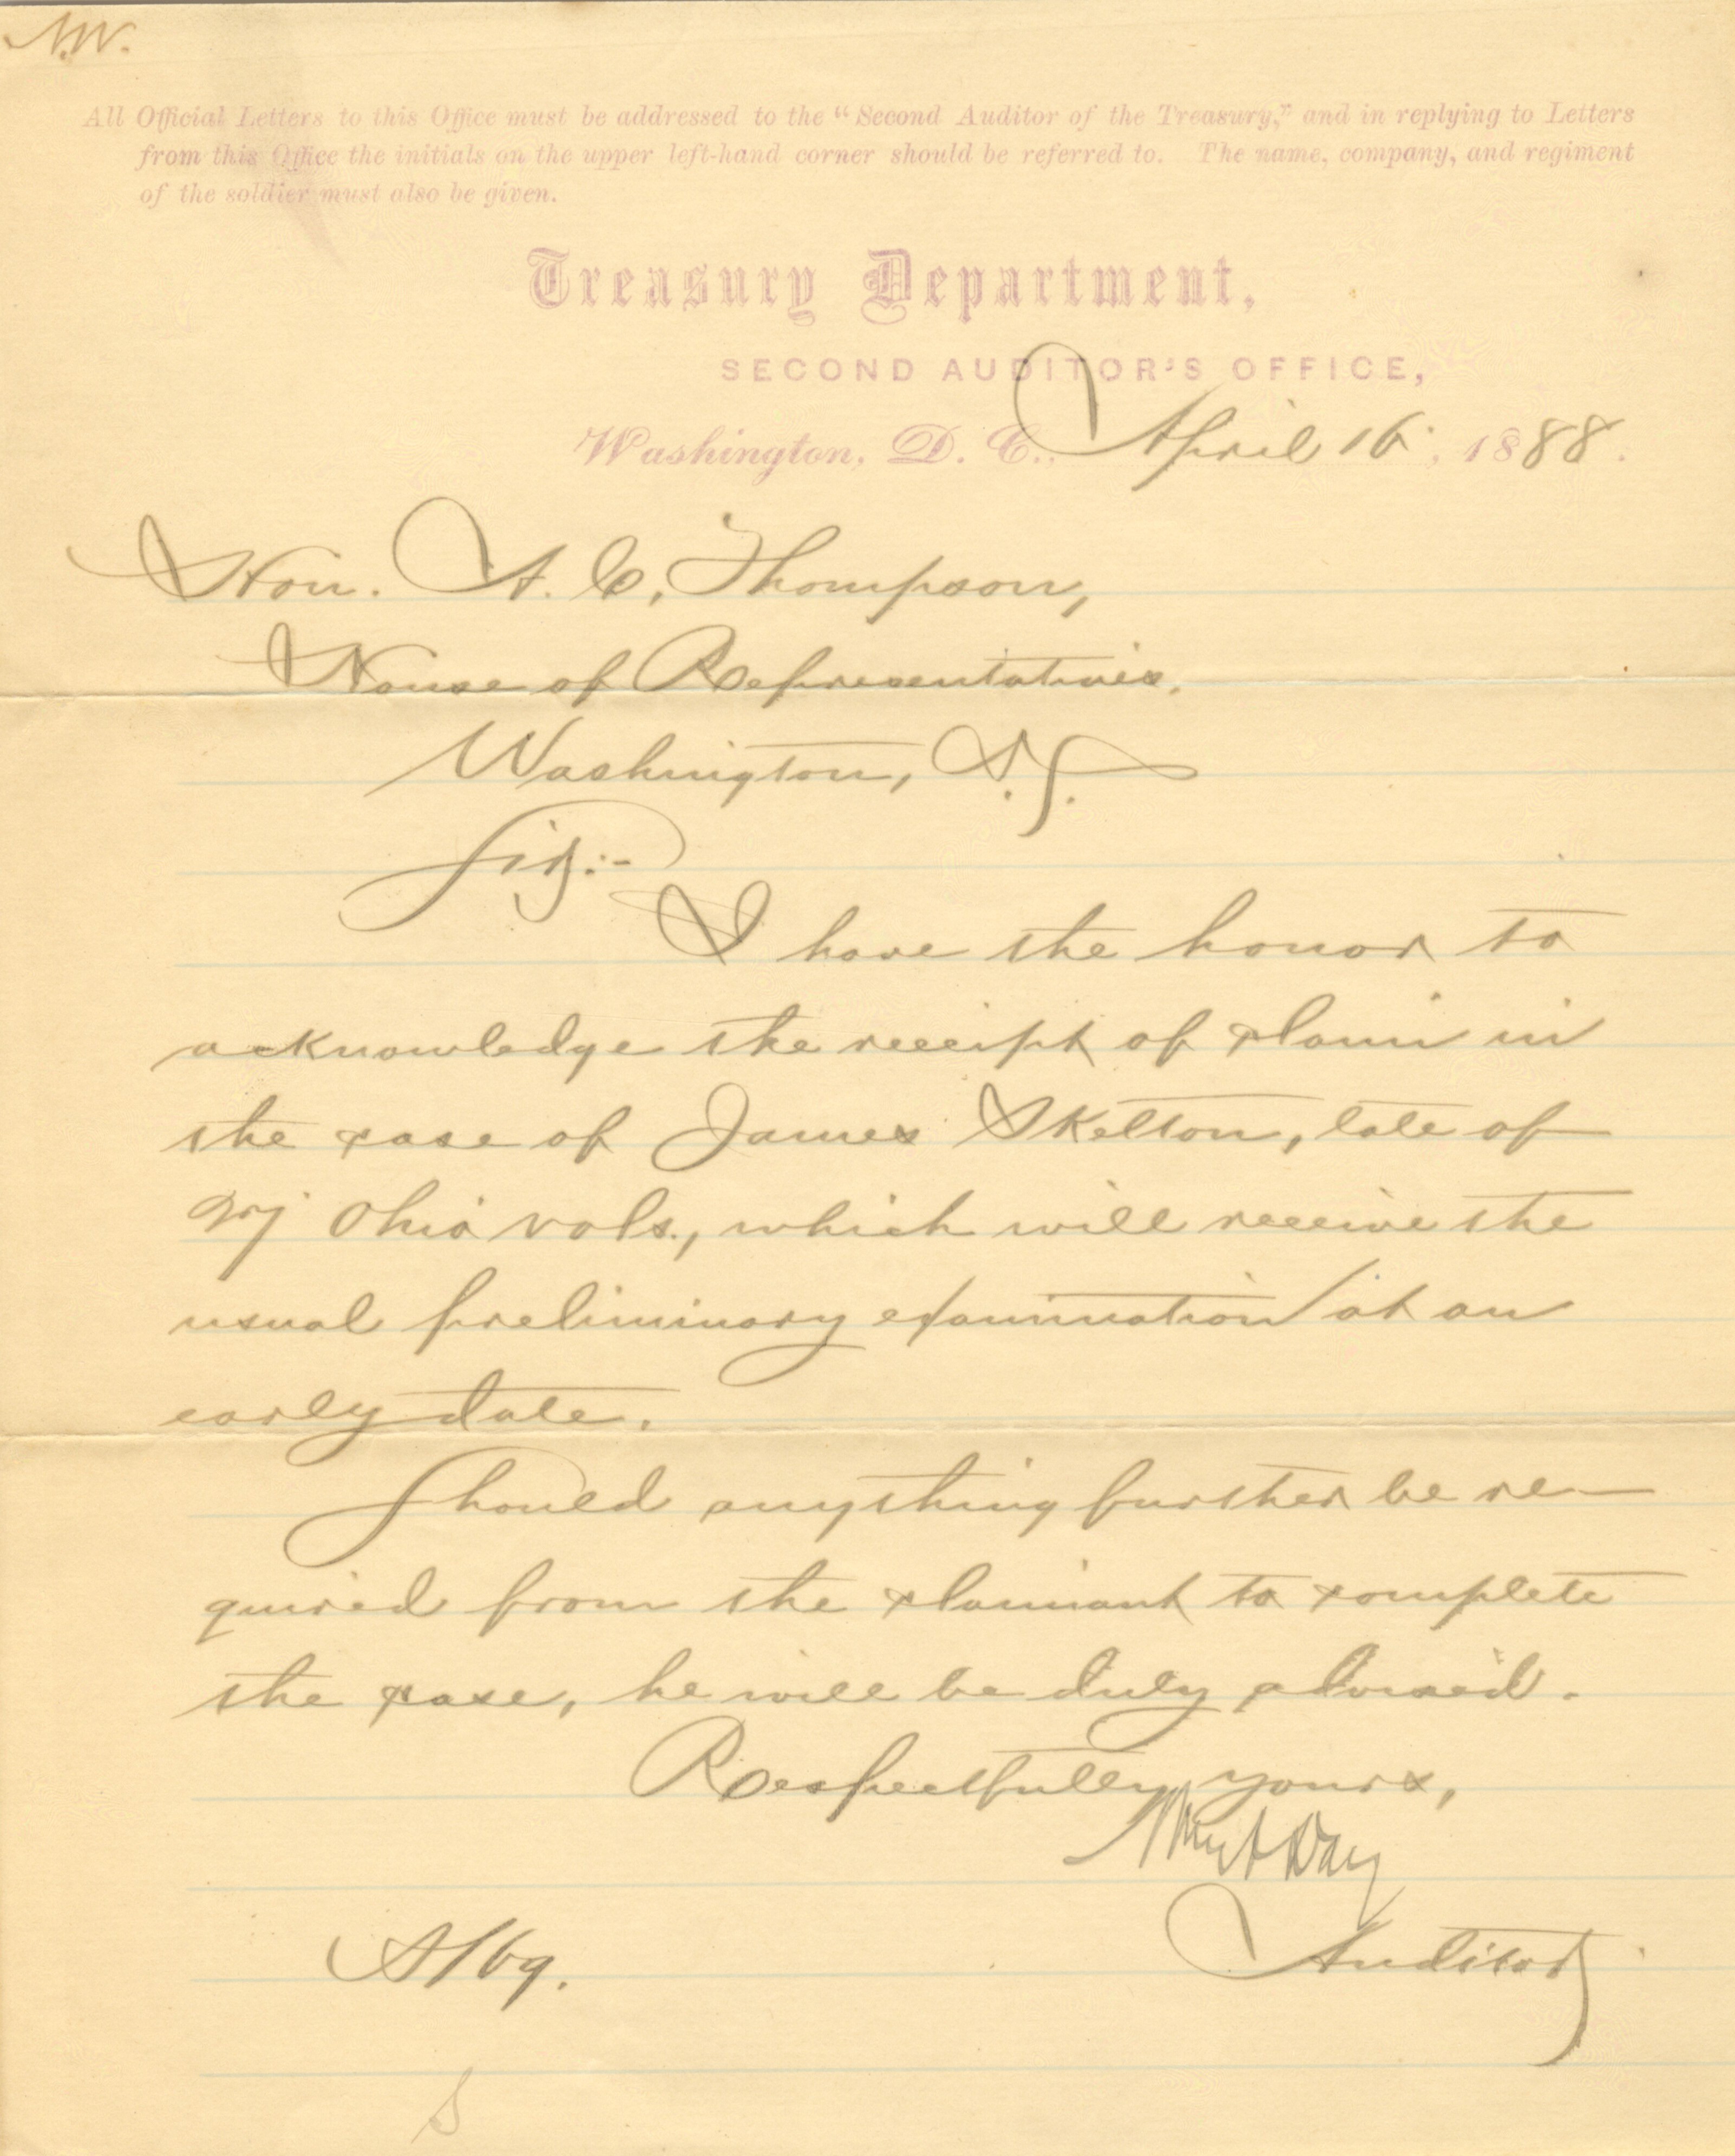 N.W.
All Official Letters to this Office must be addressed to the "Second Auditor of the Treasury," and in replying to Letters
from this Office the initials on the upper left-hand corner should be referred to. The name, company, and regiment
of the soldier must also be given.
Treasury Department,
SECOND AUDITOR'S OFFICE,
Washington, D. C., April 16, 1888.
Hon. A. C. Thompson,
House of Representatives.
Washington, D.C.
Sir:-
I have the honor to
acknowledge the receipt of claim in
the case of James Skelton, late of
Ohio vols., which will receive the
usual preliminary examination at an
early date.
Should anything further be re-
quired from the claimant to complete
the case, he will be duly advised.
Respectfully yours,
Day
Auditor